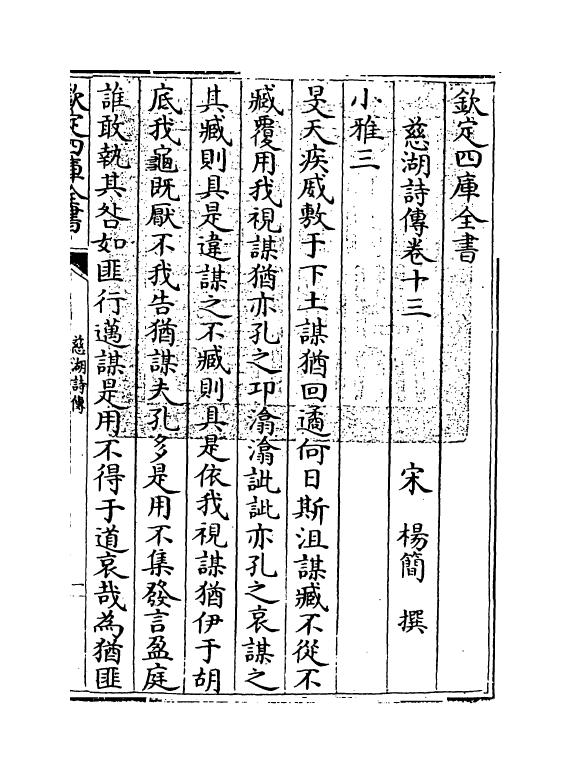 欽定四庫全書
慈湖詩傳卷十三
宋 楊簡 撰
小雅三
旻天疾威敷于下土謀猶回遹何日斯沮謀臧不從不
臧覆用我視謀猶亦孔之卭潝潝訿訿亦孔之哀謀之
其臧則具是違謀之不臧則具是依我視謀猶伊于胡
底我龜既厭不我告猶謀夫孔多是用不集發言盈庭
誰敢執其咎如匪行邁謀是用不得于道哀哉為猶匪
欽定四庫全書
慈湖詩傳
一